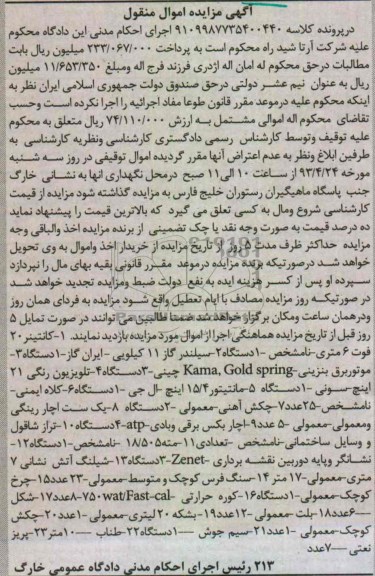 آگهی مزایده اموال منقول
درپرونده کلاسه ۹۱۰۹۹۸۷۷۳۵۴۰۰۴۴۰ اجرای احکام مدنی این دادگاه محکوم
علیه شرکت آرتا شید راه محکوم است به پرداخت ۲۳۳/۰۶۷/۰۰۰ میلیون ریال بابت
مطالبات درحق محکوم له امان اله اژدری فرزند فرج اله ومبلغ ۱۱/۶۵۳/۳۵۰ میلیون
ریال به عنوان نیم عشر دولتی درحق صندوق دولت جمهوری اسلامی ایران نظر به
اینکه محکوم علیه درموعد مقرر قانون طوعا مفاد اجرائیه را اجرا نکرده است وحسب
تقاضای محکوم اله اموالی مشتمل به ارزش ۷۴/۱۱۰/۰۰۰ ریال متعلق به محکوم
علیه توقیف وتوسط کارشناس رسمی دادگستری کارشناسی ونظریه کارشناسی به
طرفین ابلاغ ونظر به عدم اعتراض آنها مقرر گردیده اموال توقیفی در روز سه شنبه
مورخه ۹۳/۴/۲۴ از ساعت ۱۰ الی ۱۱ صبح درمحل نگهداری آنها به نشانی خارگ
جنب پاسگاه ماهیگیران رستوران خلیج فارس به مزایده گذاشته شود مزایده از قیمت
کارشناسی شروع ومال به کسی تعلق می گیرد که بالاترین قیمت را پیشنهاد نماید
ده درصد قیمت به صورت وجه نقد یا چک تضمینی از برنده مزایده اخذ والباقی وجه
مزایده حداکثر ظرف مدت ۵ روز از تاریخ مزایده از خریدار اخذ واموال به وی تحویل
خواهد شد درصورتیکه برنده مزایده درموعد مقرر قانونی بقیه بهای مال را نپردازد
سپرده او پس از کسر هزینه ایده به نفع دولت ضبط ومزایده تجدید خواهد شد
در صورتیکه روز مزایده مصادف با ایام تعطیل واقع شود مزایده به فردای همان روز
ودرهمان ساعت ومکان برگزار خواهد شد ضمنا طالبین می توانند در صورت تمایل ۵
روز قبل از تاریخ مزایده هماهنگی اجرا از اموال مورد مزایده بازدید نمایند. ۱-کانتینر۲۰
فوت ۶ متری-نامشخص-۱دستگاه۲-سیلندر گاز ۱۱ کیلویی-ایران گاز-۱دستگاه۳-
موتوربرق بنزینی-Kama, Gold spring چینی-۳دستگاه۴-تلویزیون رنگی ۲۱
اینچ-سونی-۱دستگاه ۵-مانیتور۱۵/۴ اینچ-ال جی-۱دستگاه۶-کلاه ایمنی-
نامشخص-۲۵عدد۷-چکش آهنی-معمولی-۲دستگاه ۸-یک ست اچار رینگی
ومعمولی-معمولی-۵ عدد۹-اچار بکس برقی وبادی-atp-۴دستگاه۱۰-تراز شاقول
و وسایل ساختمانی-نامشخص-تعداد۱۱-مته۱۸/۵۰۵-نامشخص-۱دستگاه۱۲-
نشانگر وپایه دوربین نقشه برداری-Zenet-۳دستگاه۱۳-شیلنگ آتش نشانی ۷
متری-معمولی-۱۷متر ۱۴-سنگ فرس کوچک و متوسط-معمولی-۲۳عدد۱۵-چرخ
کوچک-معمولی-۱دستگاه۱۶-کوره حرارتی-۷۵۰wat/Fast-cal-۸عدد۱۷-شکل
-----۶عدد۱۸-پلت-معمولی-۱۲عدد۱۹-بشکه ۲۰لیتری-معمولی-۱عدد۲۰-چکش
کوچک-معمولی-۱عدد۲۱-سیم جوش----۱دستگاه۲۲-طناب----۱۰متر۲۳-پریز
نعتی----۷عدد
۲۱۳ رئیس اجرای احکام مدنی دادگاه عمومی خارگ